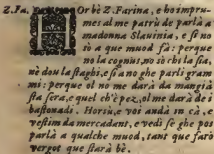 Z.Fa. Or bè Z. Farina, e ho impru-
mes al me patrù de parla a
madonna Slauinia, e sì no
io a que muod fà: perque
no la cognis, no so chi la sia,
nè dou la staghi, e sì a no ghe parli gram
mi: perque ol no me darà da mangià
sta sera, e quel ch'è pez, ol me darà de i
bastonadi. Horsù, e voi andà in cà, e
vestim da mercadant, e vedi se ghe pos
parlà a qualche muod, tant que farò
vergot que starà bè.